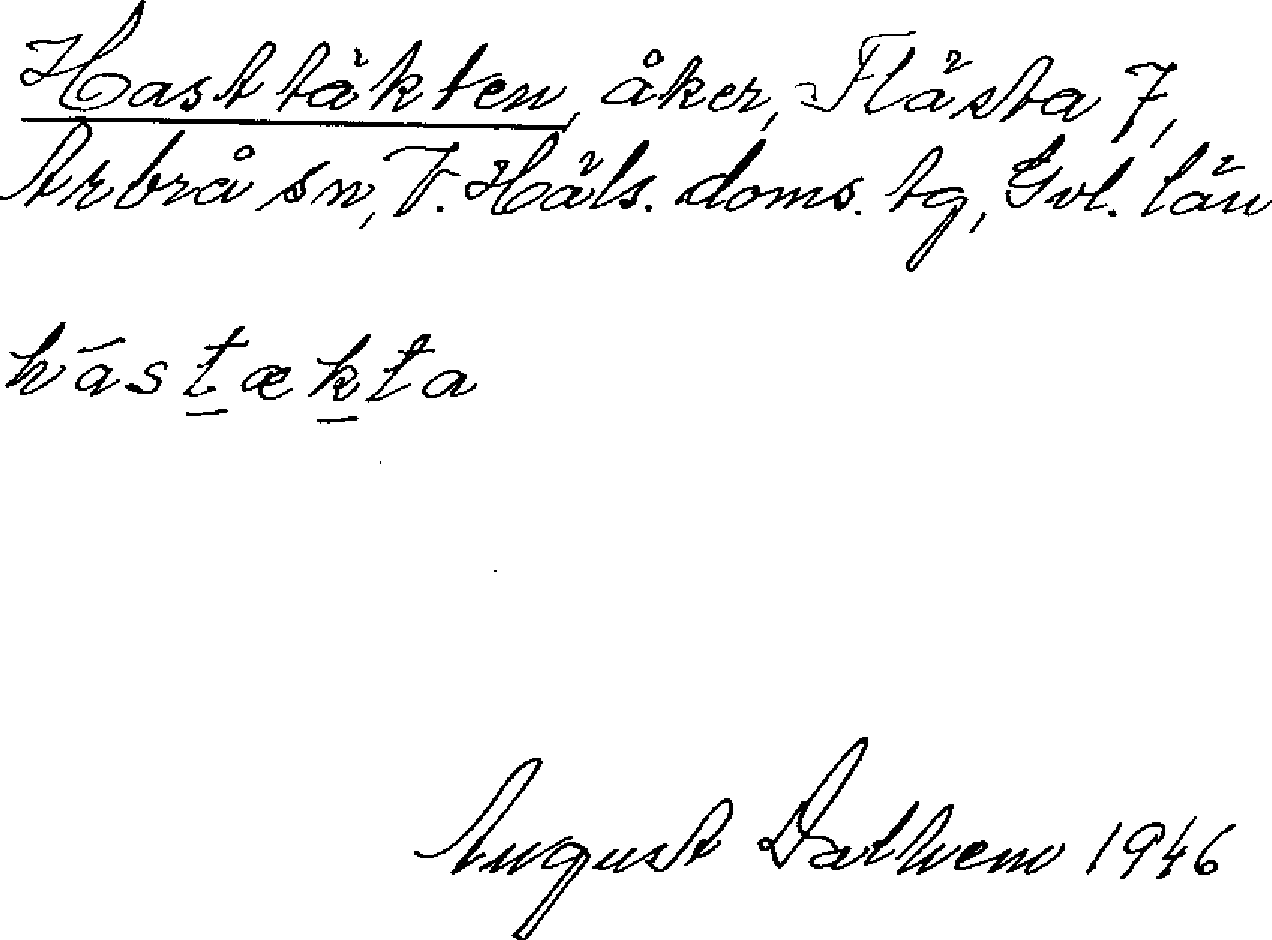 Hasttäkten, åker, Flästa 7,
Arbrå sn, V. Häls. doms. tg, Gvl. län
hástækta
August Dathem 1946